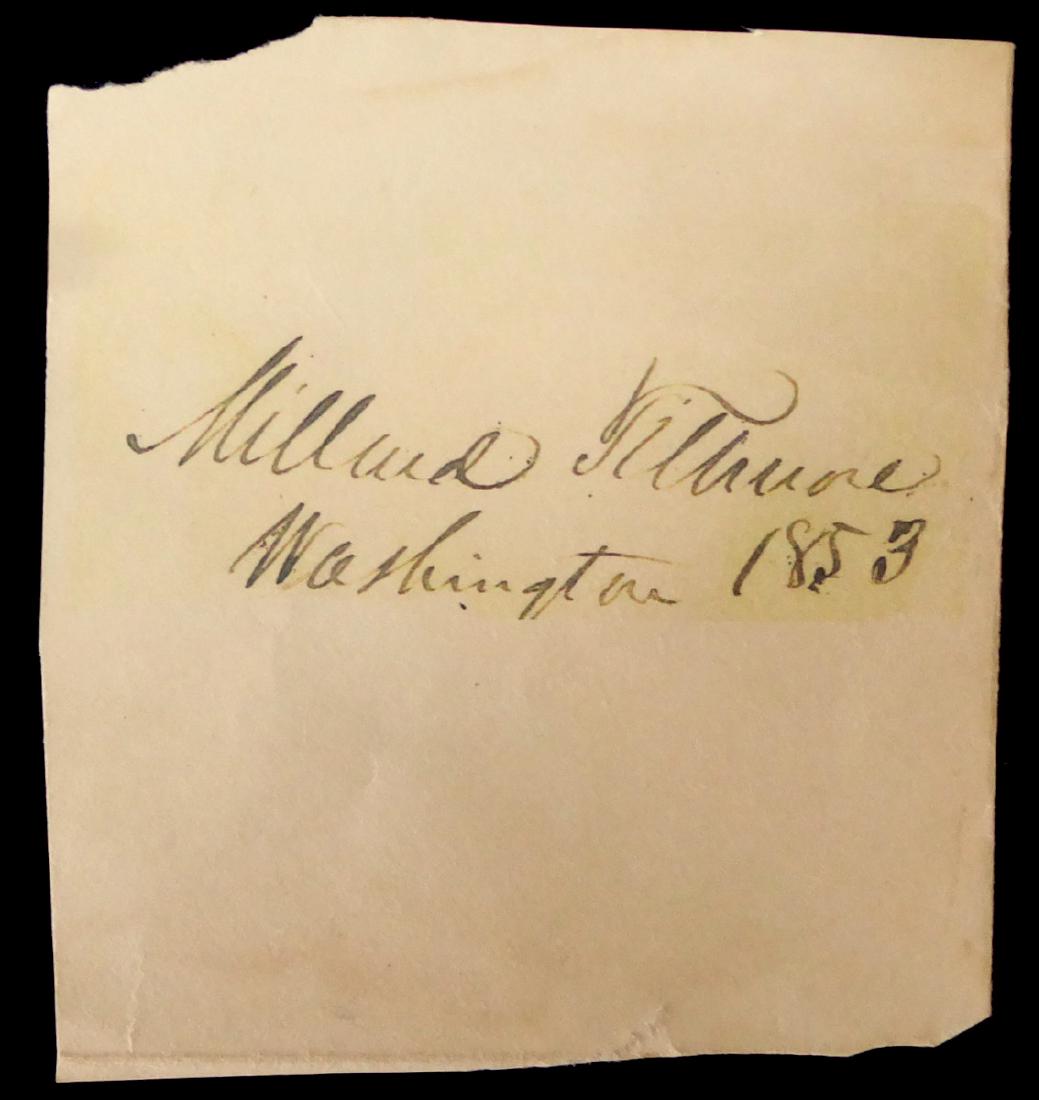 Millard Fillmore
Washington 1853